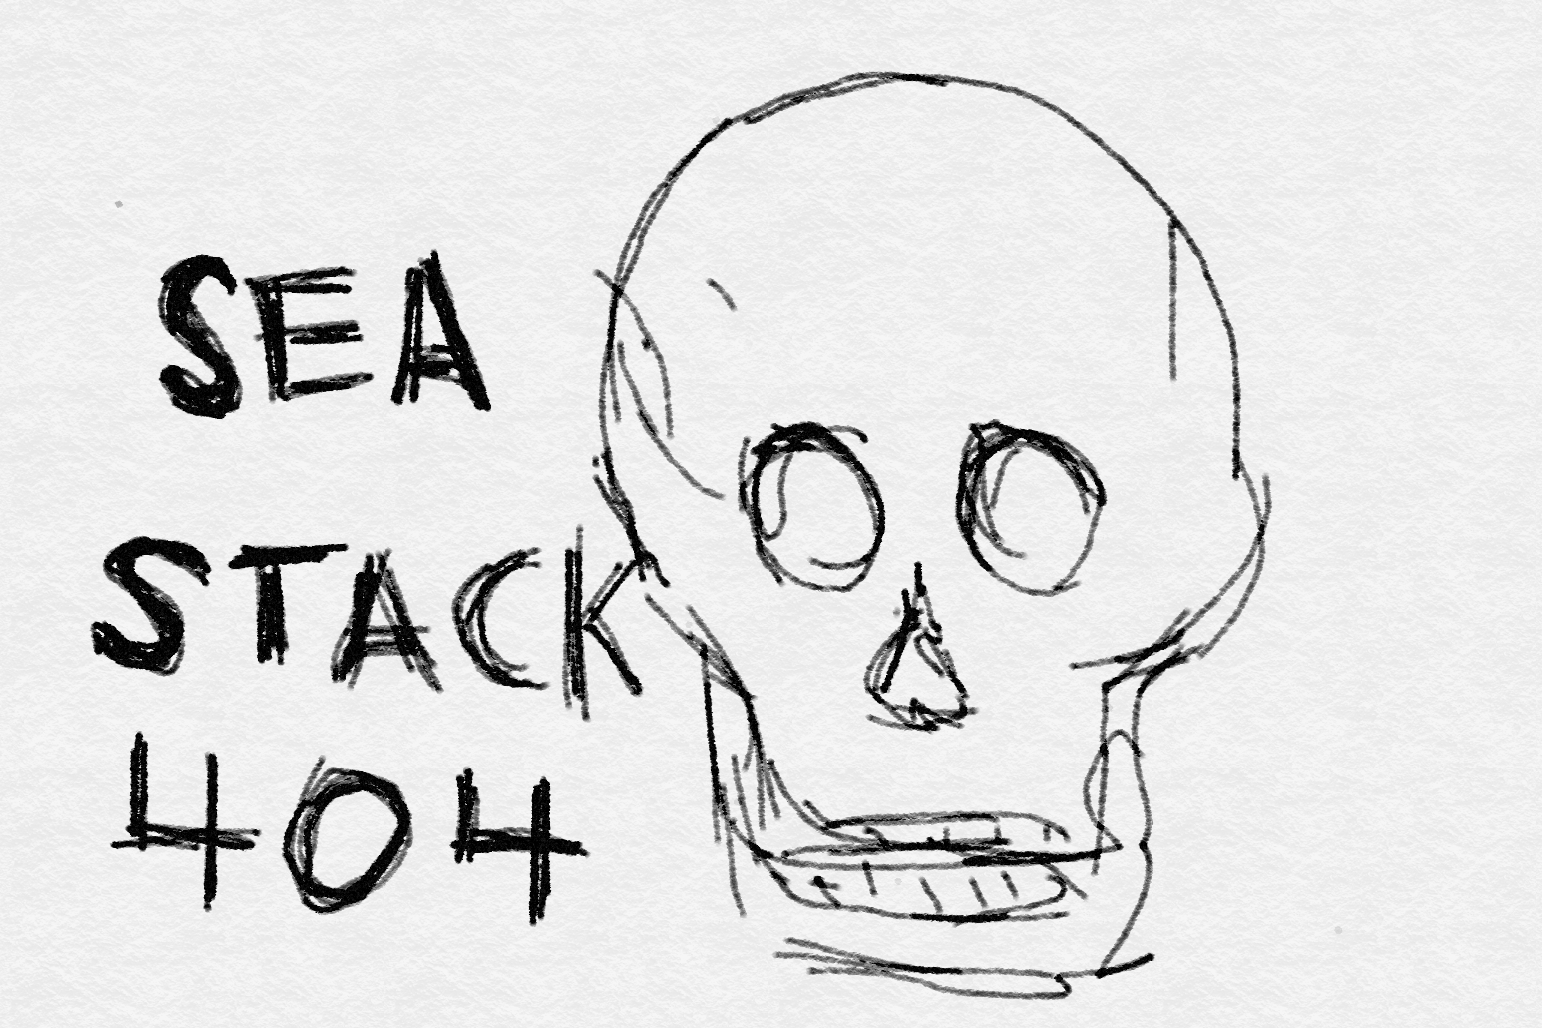 SEA
STACK
404